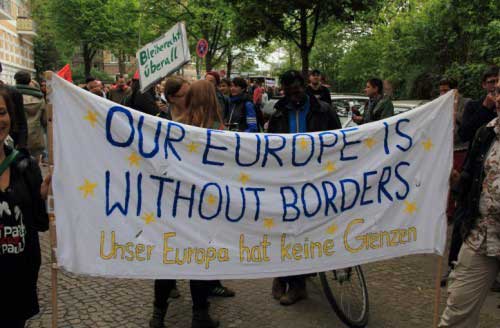 Bleiberecht
überall
OUR EUROPE IS
WITHOUT BORDERS
Unser Europa hat keine Grenzen